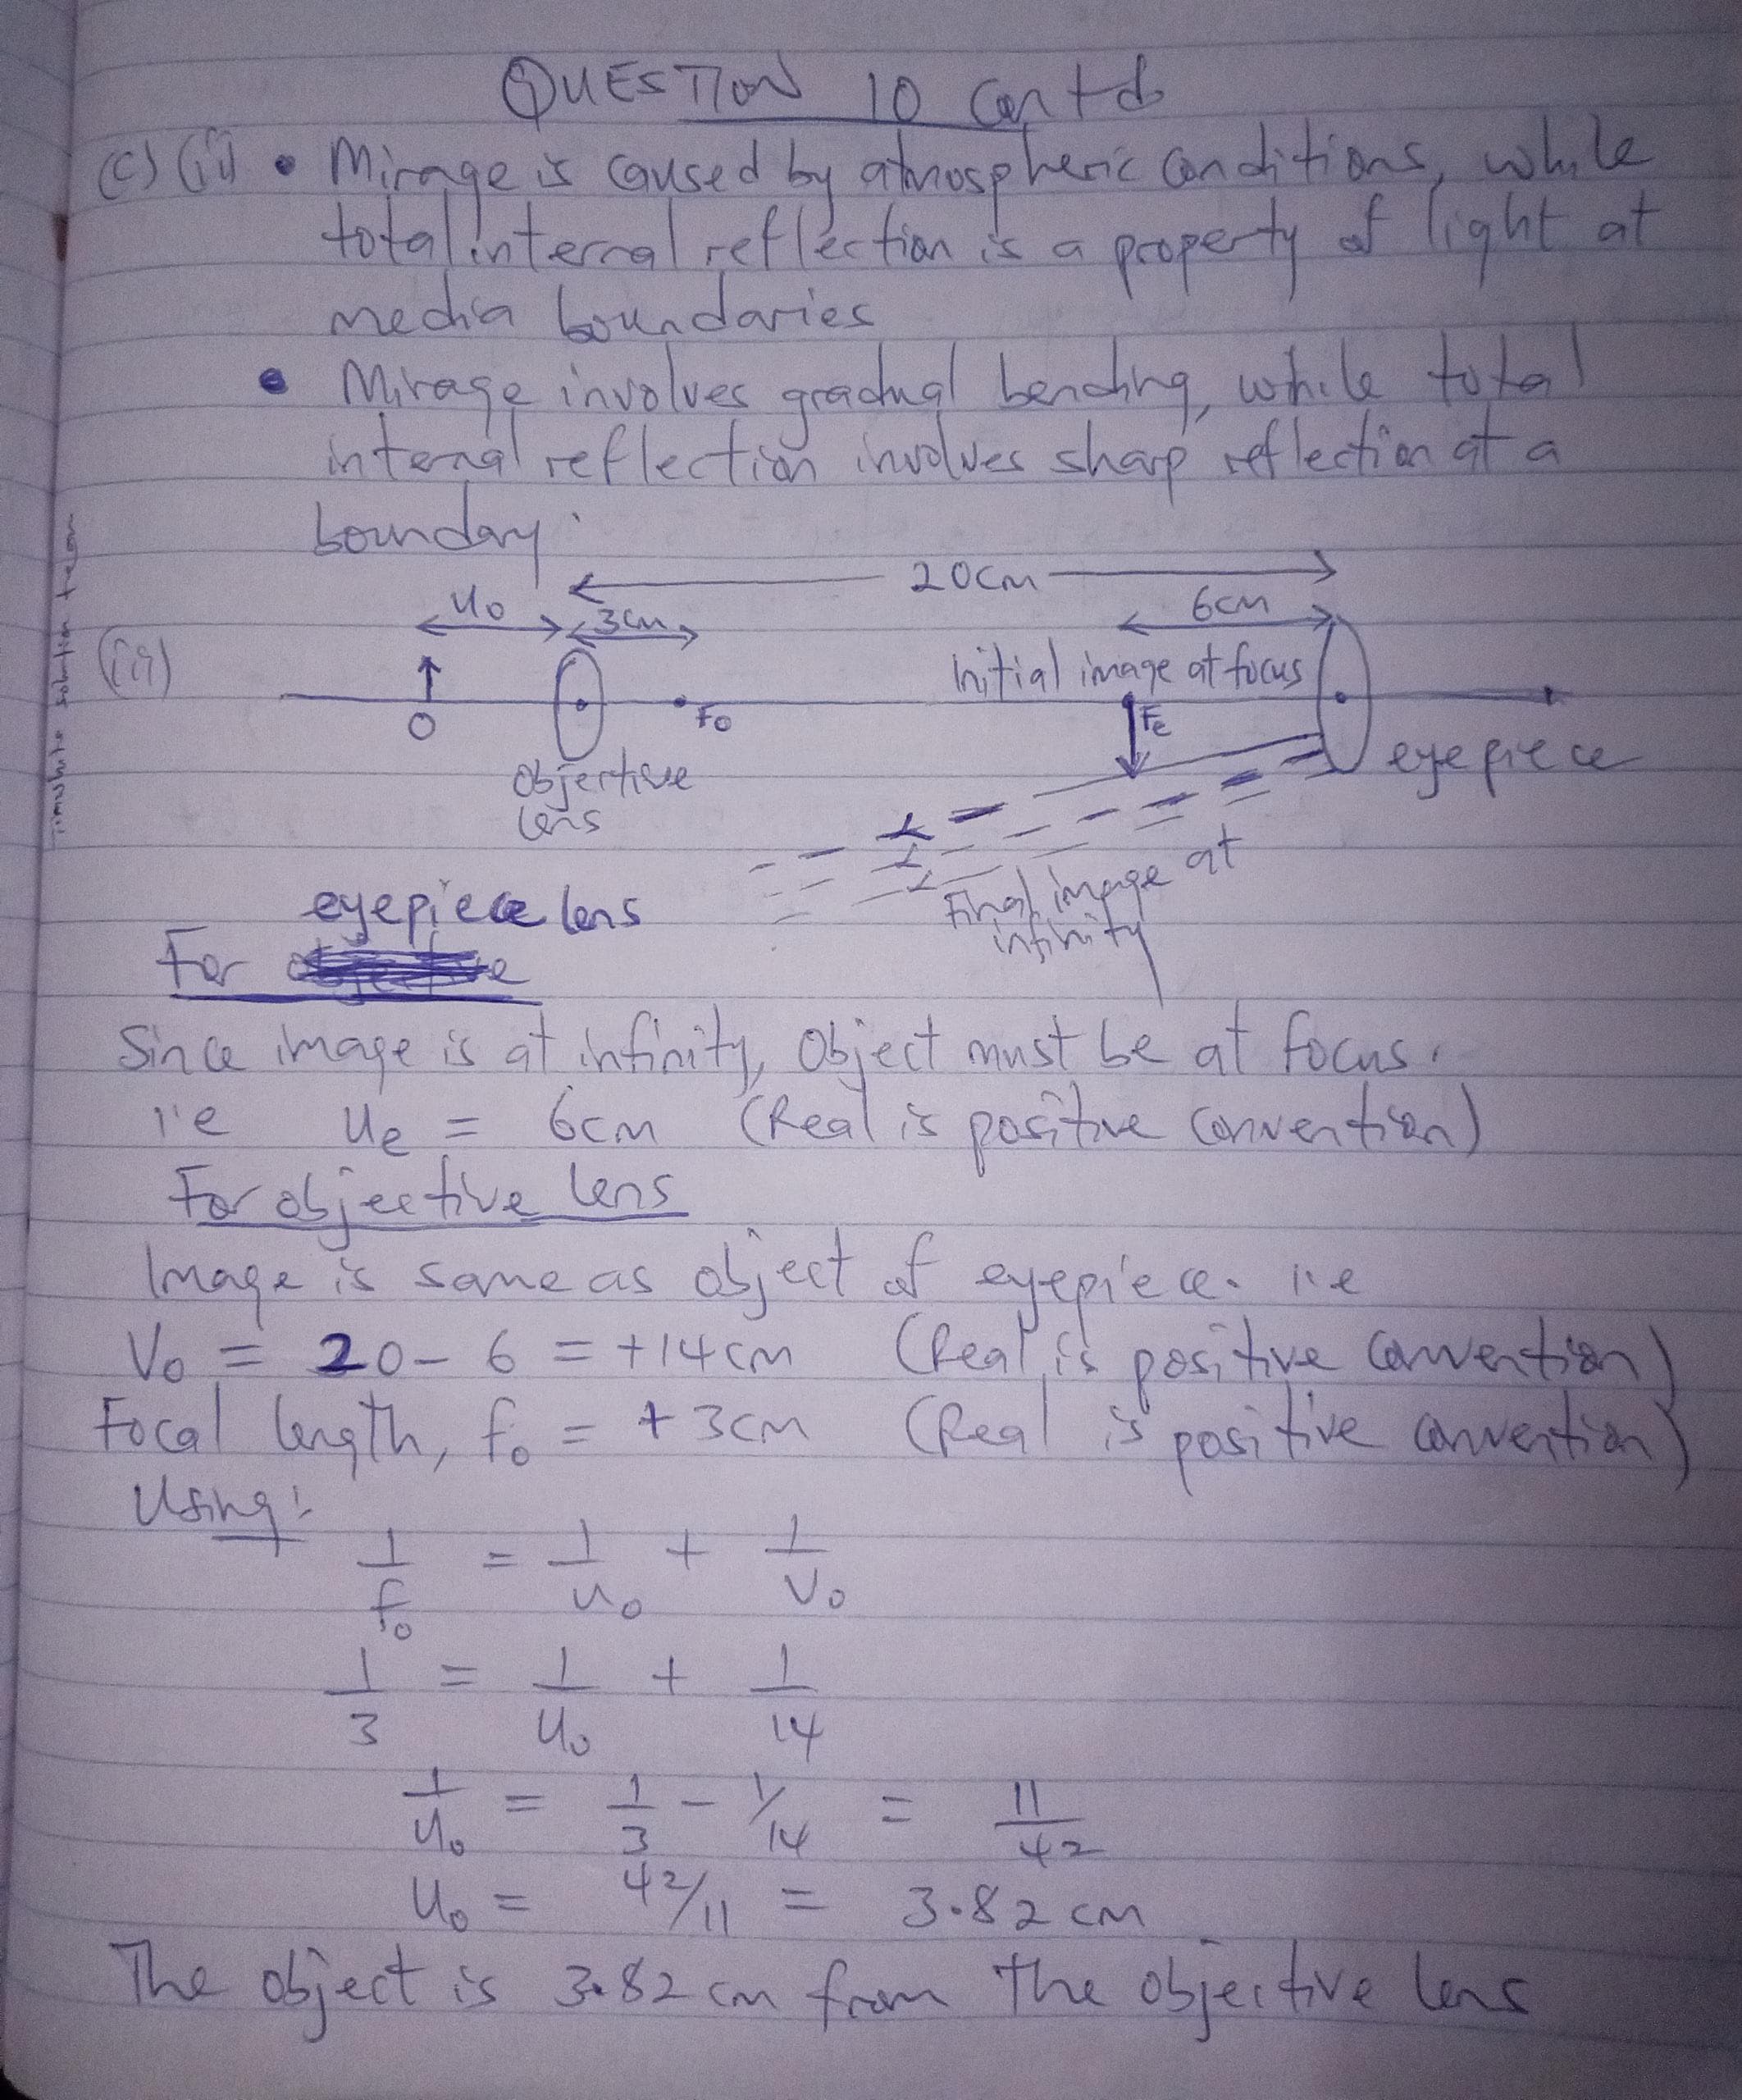 QUESTION 10 Contd
(c) (ii) • Mirage is caused by atmospheric conditions, while
total internal reflection is a property of light at
media boundaries
• Mirage involves gradual bending, while total
internal reflection involves sharp reflection at a
boundary.
20cm
u₀ 3cm 6cm
(iii) Initial image at focus
O F₀ Fe
objective eyepiece
lens
Final image at
infinity
eyepiece lens
For
Since image is at infinity, Object must be at focus.
i.e ue = 6cm (Real is positive convention)
For objective lens
Image is same as object of eyepiece. i.e
V₀ = 20 - 6 = +14cm (Real is positive convention)
Focal length, f₀ = +3cm (Real is positive convention)
Using:
1/f₀ = 1/u₀ + 1/V₀
1/3 = 1/u₀ + 1/14
1/u₀ = 1/3 - 1/14 = 11/42
u₀ = 42/11 = 3.82 cm
The object is 3.82 cm from the objective lens
solution team